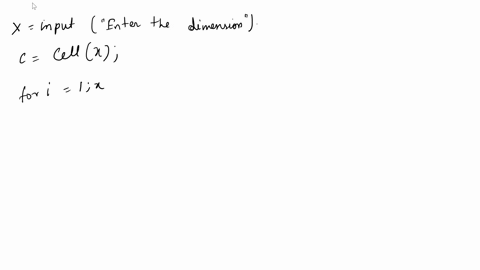 x = input ("Enter the dimension").
c = cell (x);
for i = 1 ; x